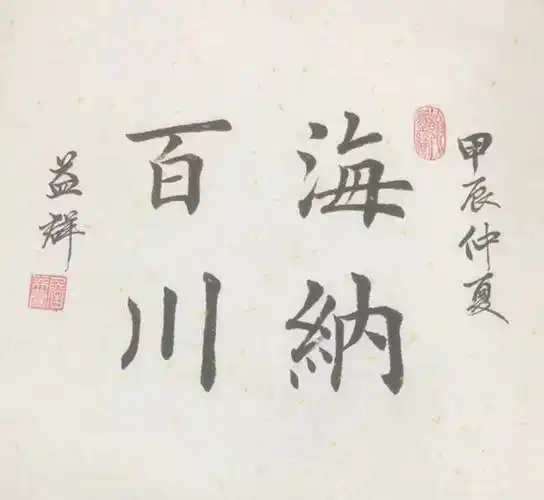 甲辰仲夏
海納
百川
益群